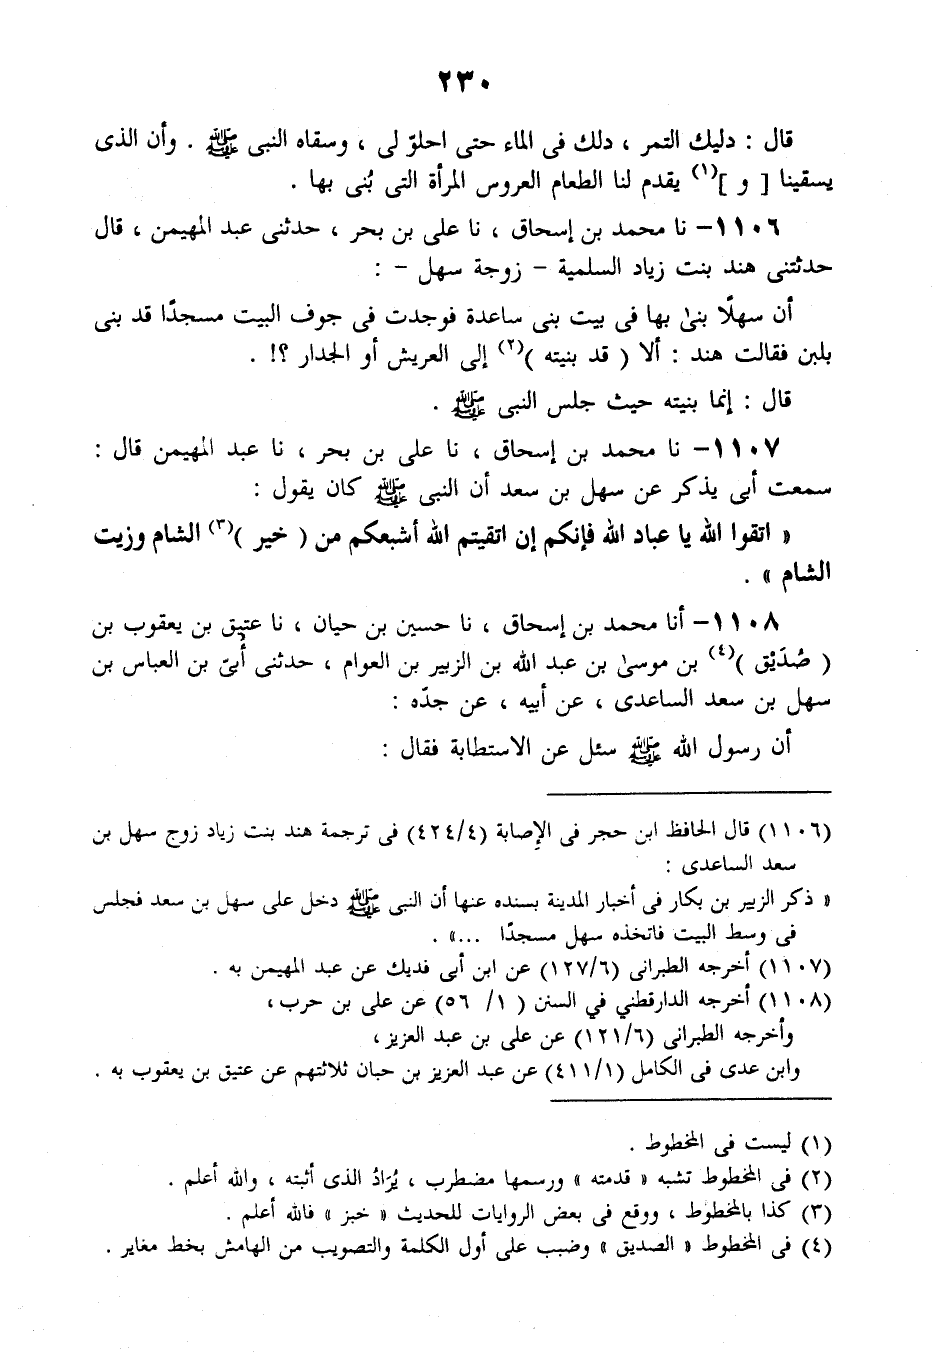 ٢٣٠
قال : دليك التمر ، دلك فى الماء حتى احلوّ لى ، وسقاه النبى ﷺ . وأن الذى
يسقينا [ و ](١) يقدم لنا الطعام العروس المرأة التى بُنى بها .
١١٠٦– نا محمد بن إسحاق ، نا على بن بحر ، حدثنى عبد المهيمن ، قال
حدثتنى هند بنت زياد السلمية – زوجة سهل – :
أن سهلًا بنىٰ بها فى بيت بنى ساعدة فوجدت فى جوف البيت مسجدًا قد بنى
بلبن فقالت هند : ألا ( قد بنيته )(٢) إلى العريش أو الجدار ؟! .
قال : إنما بنيته حيث جلس النبى ﷺ .
١١٠٧– نا محمد بن إسحاق ، نا على بن بحر ، نا عبد المهيمن قال :
سمعت أبى يذكر عن سهل بن سعد أن النبى ﷺ كان يقول :
« اتقوا الله يا عباد الله فإنكم إن اتقيتم الله أشبعكم من ( خير )(٣) الشام وزيت
الشام » .
١١٠٨– أنا محمد بن إسحاق ، نا حسين بن حيان ، نا عتيق بن يعقوب بن
( صُدَيْق )(٤) بن موسىٰ بن عبد الله بن الزبير بن العوام ، حدثنى أُبىّ بن العباس بن
سهل بن سعد الساعدى ، عن أبيه ، عن جدّه :
أن رسول الله ﷺ سئل عن الاستطابة فقال :
(١١٠٦) قال الحافظ ابن حجر فى الإصابة (٤٢٤/٤) فى ترجمة هند بنت زياد زوج سهل بن
سعد الساعدى :
« ذكر الزبير بن بكار فى أخبار المدينة بسنده عنها أن النبى ﷺ دخل على سهل بن سعد فجلس
فى وسط البيت فاتخذه سهل مسجدًا ...» .
(١١٠٧) أخرجه الطبرانى (١٢٧/٦) عن ابن أبى فديك عن عبد المهيمن به .
(١١٠٨) أخرجه الدارقطني في السنن ( ١/ ٥٦) عن على بن حرب،
وأخرجه الطبرانى (١٢١/٦) عن على بن عبد العزيز،
وابن عدى فى الكامل (٤١١/١) عن عبد العزيز بن حبان ثلاثتهم عن عتيق بن يعقوب به .
(١) ليست فى المخطوط .
(٢) فى المخطوط تشبه « قدمته » ورسمها مضطرب ، يُرَادُ الذى أثبته ، والله أعلم .
(٣) كذا بالمخطوط ، ووقع فى بعض الروايات للحديث « خبز » فالله أعلم .
(٤) فى المخطوط « الصديق » وضبب على أول الكلمة والتصويب من الهامش بخط مغاير .